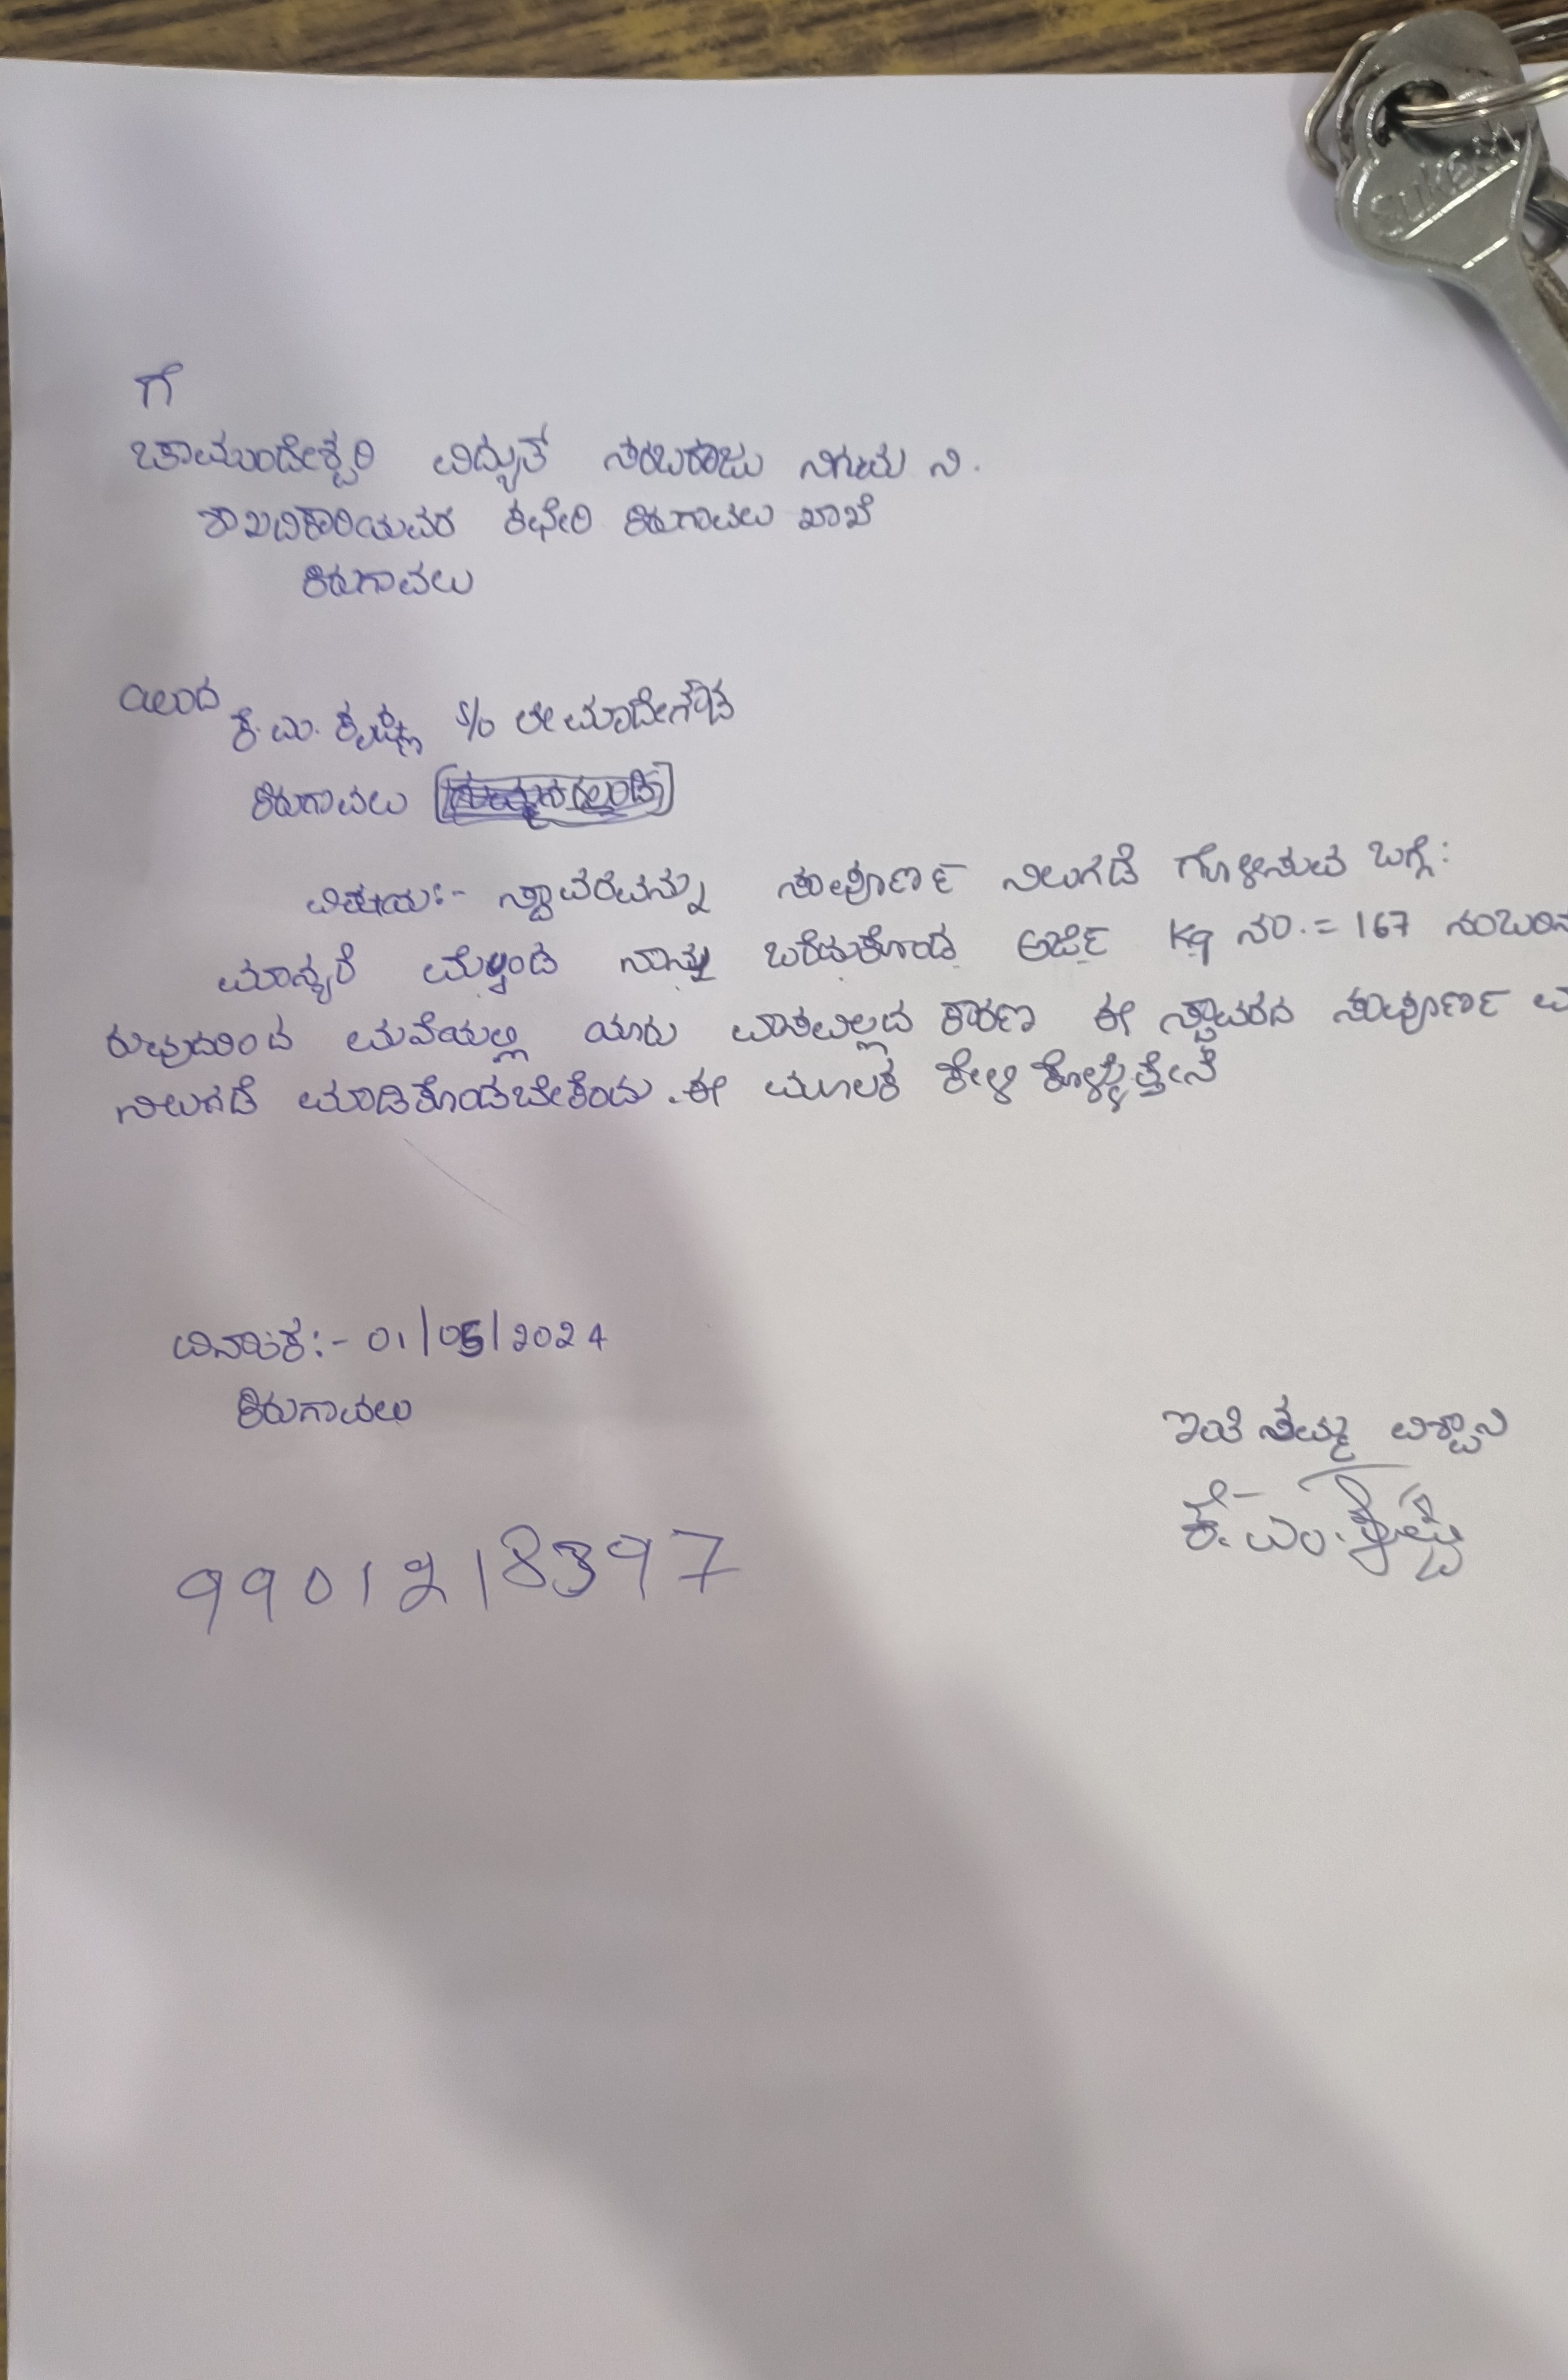 SUKEN
ಗೆ
ಚಾಮುಂದೇಶ್ವರಿ ವಿದ್ಯುತ್ ಸರಬರಾಜು ನಿಗಮ ನಿ.
ಶಾಖದಿಕಾರಿಯವರ ಕಛೇರಿ ಕಿರುಗಾವಲು ಖಾಖೆ
ಕಿರುಗಾವಲು
ಯಿಂದ
ಕೆ.ಎಂ. ಕೃಷ್ಣ S/o ಲೇ ಮಾದೇಗೌಡ
ಕಿರುಗಾವಲು
ವಿಷಯಃ- ಸ್ಥಾವರವನ್ನು ಸಂಪೂರ್ಣ ನಿಲುಗಡೆ ಗೊಳಿಸುವ ಬಗ್ಗೆ:
ಮಾನ್ಯರೆ ಮೇಲ್ಕಂಡ ನಾನು ಬರೆದುಕೊಂಡ ಅರ್ಜಿ Kg ನಂ.= 167 ನಂಬರಿನ
ರುವುದರಿಂದ ಮನೆಯಲ್ಲಿ ಯಾರು ವಾಸವಿಲ್ಲದ ಕಾರಣ ಈ ಸ್ಥಾವರದ ಸಂಪೂರ್ಣ
ನಿಲುಗಡೆ ಮಾಡಿಕೊಂಡಬೇಕೆಂದು .ಈ ಮೂಲಕ ಕೇಳಿ ಕೊಳ್ಳುತ್ತೇನೆ
ದಿನಾಂಕ:- 01/05/2024
ಕಿರುಗಾವಲು
ಇಂತಿ ತಮ್ಮ ವಿಶ್ವಾಸಿ
ಕೆ. ಎಂ. ಕೃಷ್ಣ
9901218397